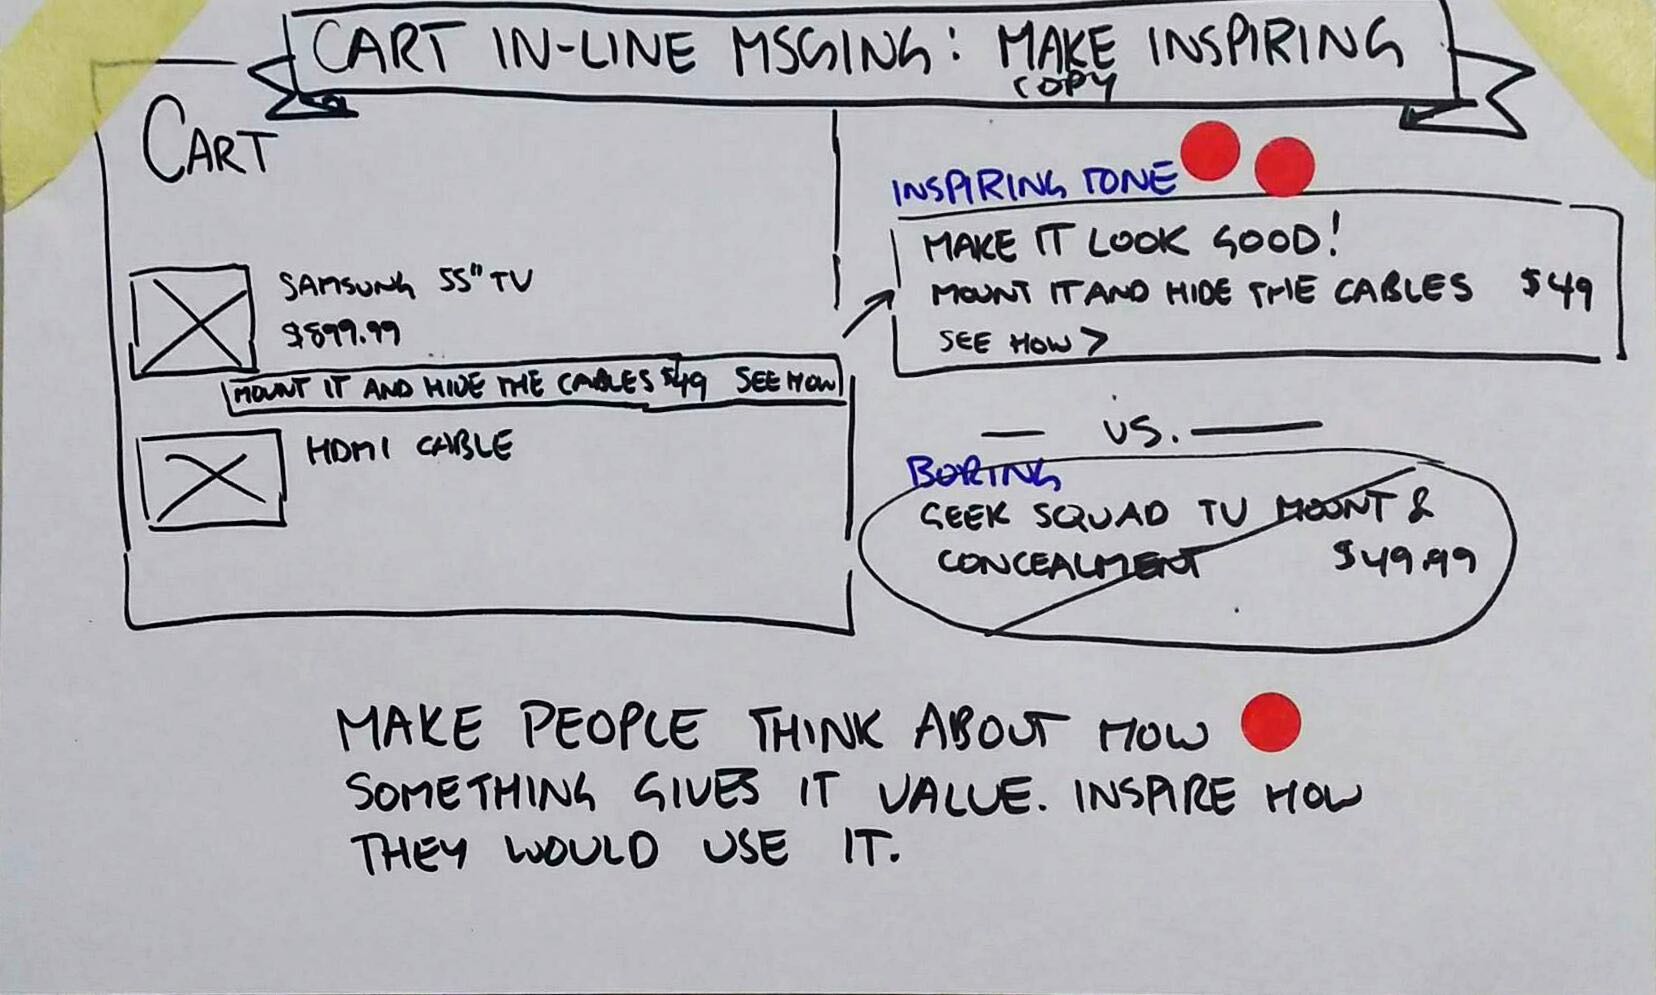 CART IN-LINE MSGING: MAKE INSPIRING
COPY
CART
SAMSUNG 55" TV
$899.99
MOUNT IT AND HIDE THE CABLES $49 SEE HOW
HDMI CABLE
INSPIRING TONE
MAKE IT LOOK GOOD!
MOUNT IT AND HIDE THE CABLES $49
SEE HOW >
VS.
BORING
GEEK SQUAD TV MOUNT &
CONCEALMENT $49.99
MAKE PEOPLE THINK ABOUT HOW
SOMETHING GIVES IT VALUE. INSPIRE HOW
THEY WOULD USE IT.